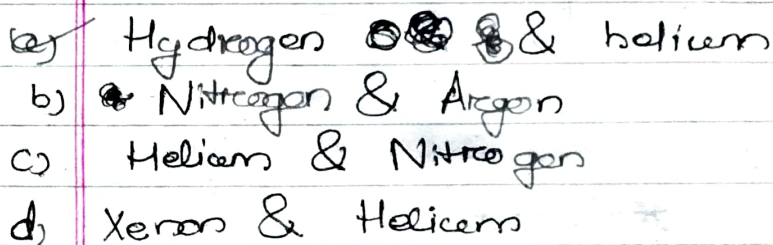 a) Hydrogen & helium
b) Nitrogen & Argon
c) Helium & Nitrogen
d) Xenon & Helium